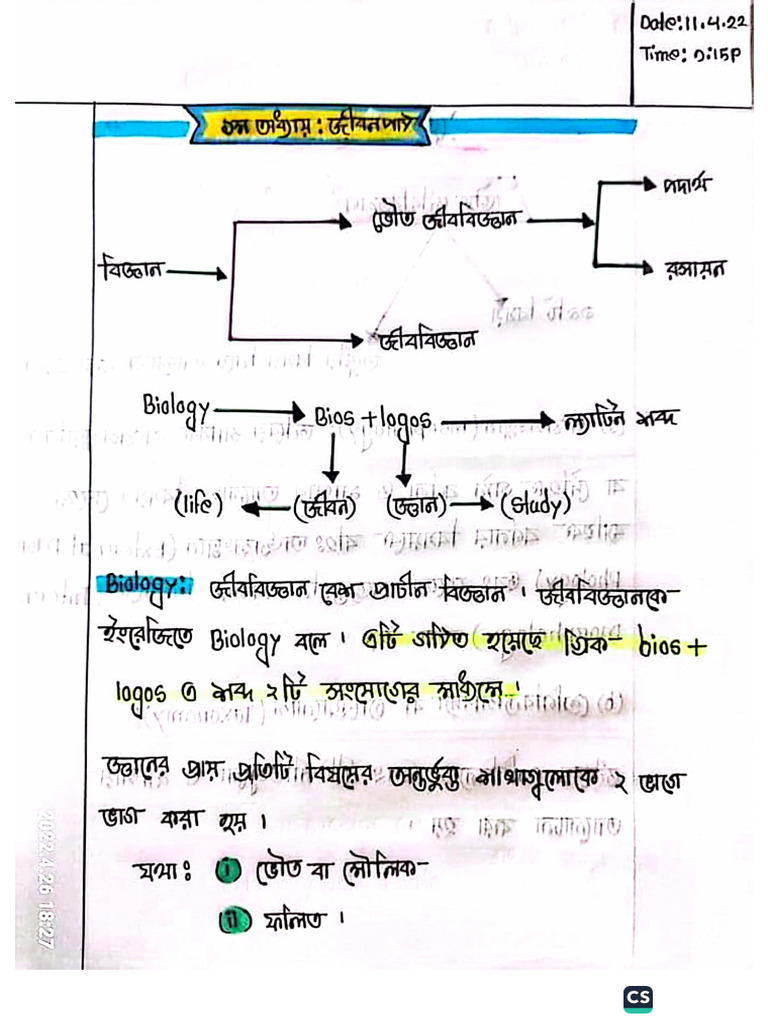 Date: 11.4.22
Time: 2:15P
১ম অধ্যায় : জীবনপাঠ
পদার্থ
ভৌত জীববিজ্ঞান
বিজ্ঞান
রসায়ন
জীববিজ্ঞান
Biology Bios + logos ল্যাটিন শব্দ
(life) (জীবন) (জ্ঞান) (study)
Biology: জীববিজ্ঞান বেশ প্রাচীন বিজ্ঞান । জীববিজ্ঞানকে
ইংরেজিতে Biology বলে । এটি গঠিত হয়েছে গ্রিক bios +
logos এ শব্দ ২টি সংযোগের মাধ্যমে ।
জ্ঞানের প্রায় প্রতিটি বিষয়ের অন্তর্ভুক্ত শাখাগুলোকে ২ ভাগে
ভাগ করা হয় ।
যথা : i ভৌত বা মৌলিক
ii ফলিত ।
2022.4.26 18:27
CS